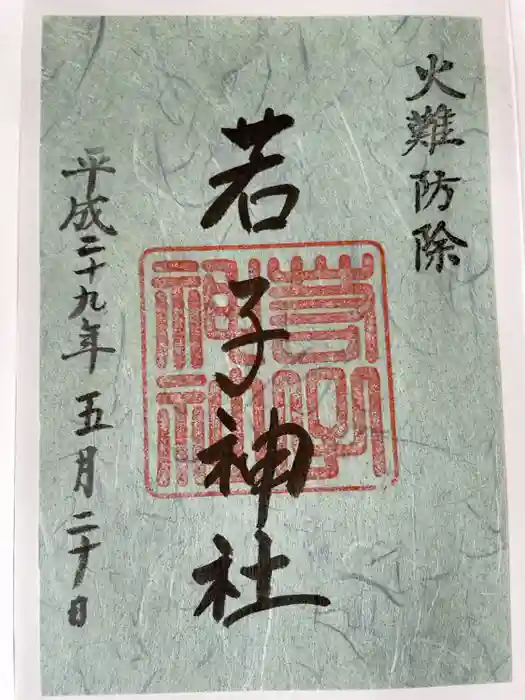 火難防除
若子神社
若子
神社
平成二十九年五月二十日